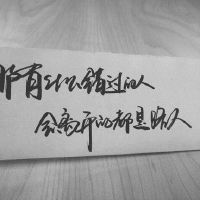 那有什么错过的人
会离开的都是路人